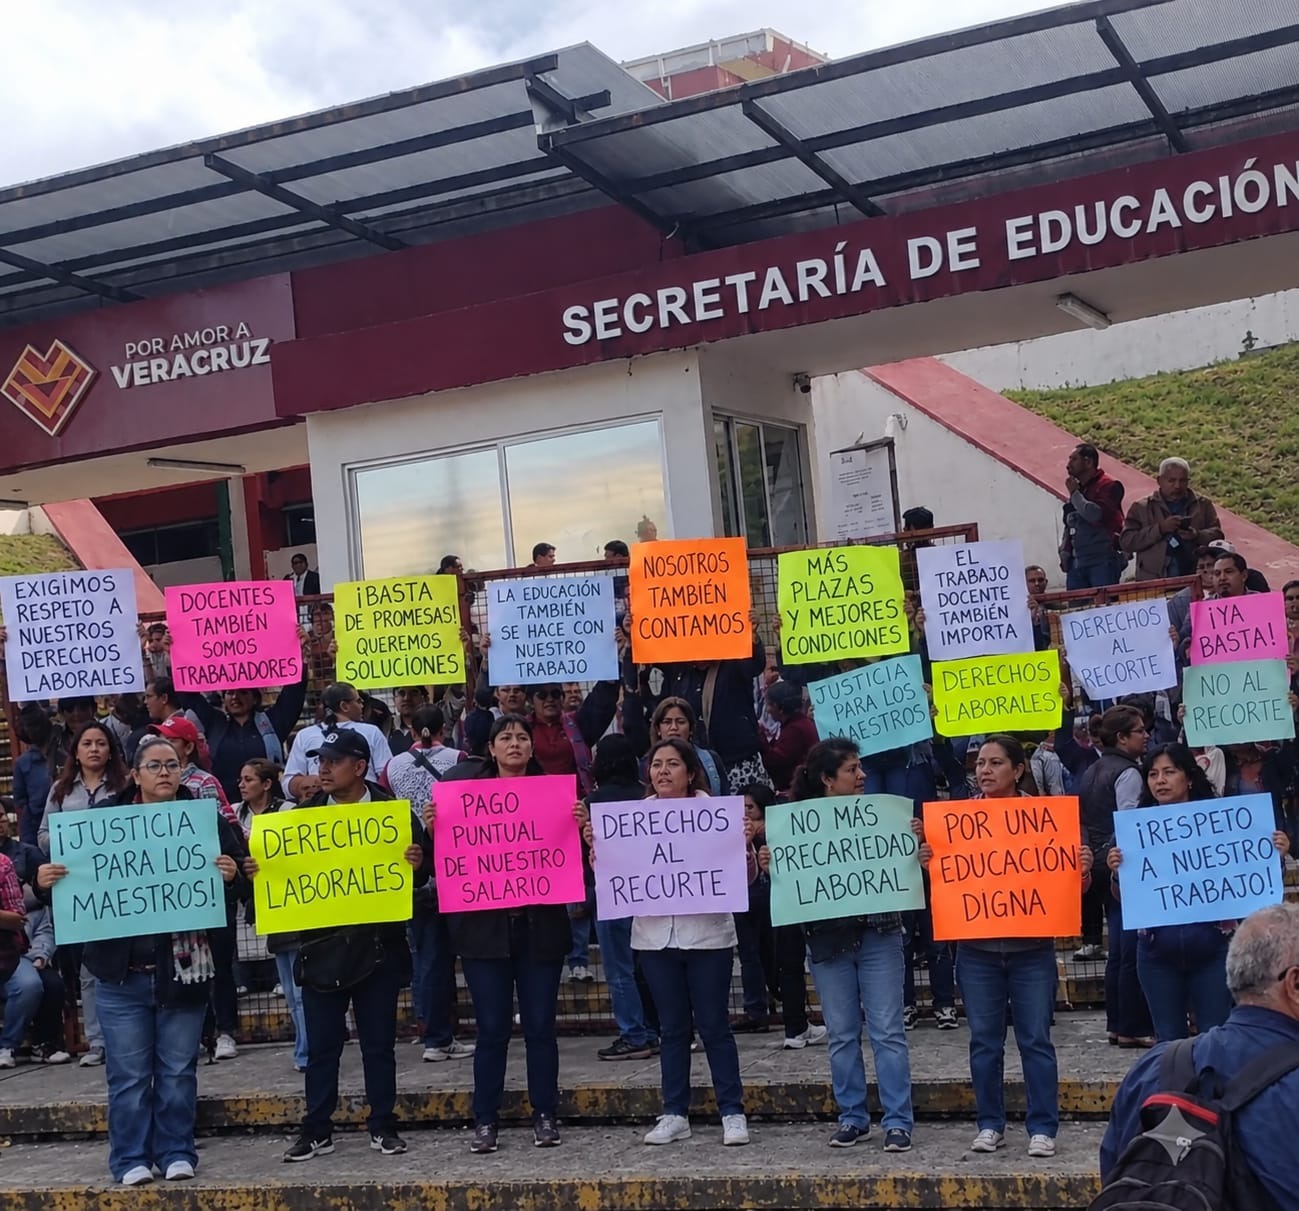 SECRETARÍA DE EDUCACIÓN
POR AMOR A
VERACRUZ
EXIGIMOS
RESPETO A
NUESTROS
DERECHOS
LABORALES
DOCENTES
TAMBIÉN
SOMOS
TRABAJADORES
¡BASTA
DE PROMESAS!
QUEREMOS
SOLUCIONES
LA EDUCACIÓN
TAMBIÉN
SE HACE CON
NUESTRO
TRABAJO
NOSOTROS
TAMBIÉN
CONTAMOS
MÁS
PLAZAS
Y MEJORES
CONDICIONES
EL
TRABAJO
DOCENTE
TAMBIÉN
IMPORTA
DERECHOS
AL
RECORTE
¡YA
BASTA!
JUSTICIA
PARA LOS
MAESTROS
DERECHOS
LABORALES
NO AL
RECORTE
¡JUSTICIA
PARA LOS
MAESTROS!
DERECHOS
LABORALES
PAGO
PUNTUAL
DE NUESTRO
SALARIO
DERECHOS
AL
RECURTE
NO MÁS
PRECARIEDAD
LABORAL
POR UNA
EDUCACIÓN
DIGNA
¡RESPETO
A NUESTRO
TRABAJO!